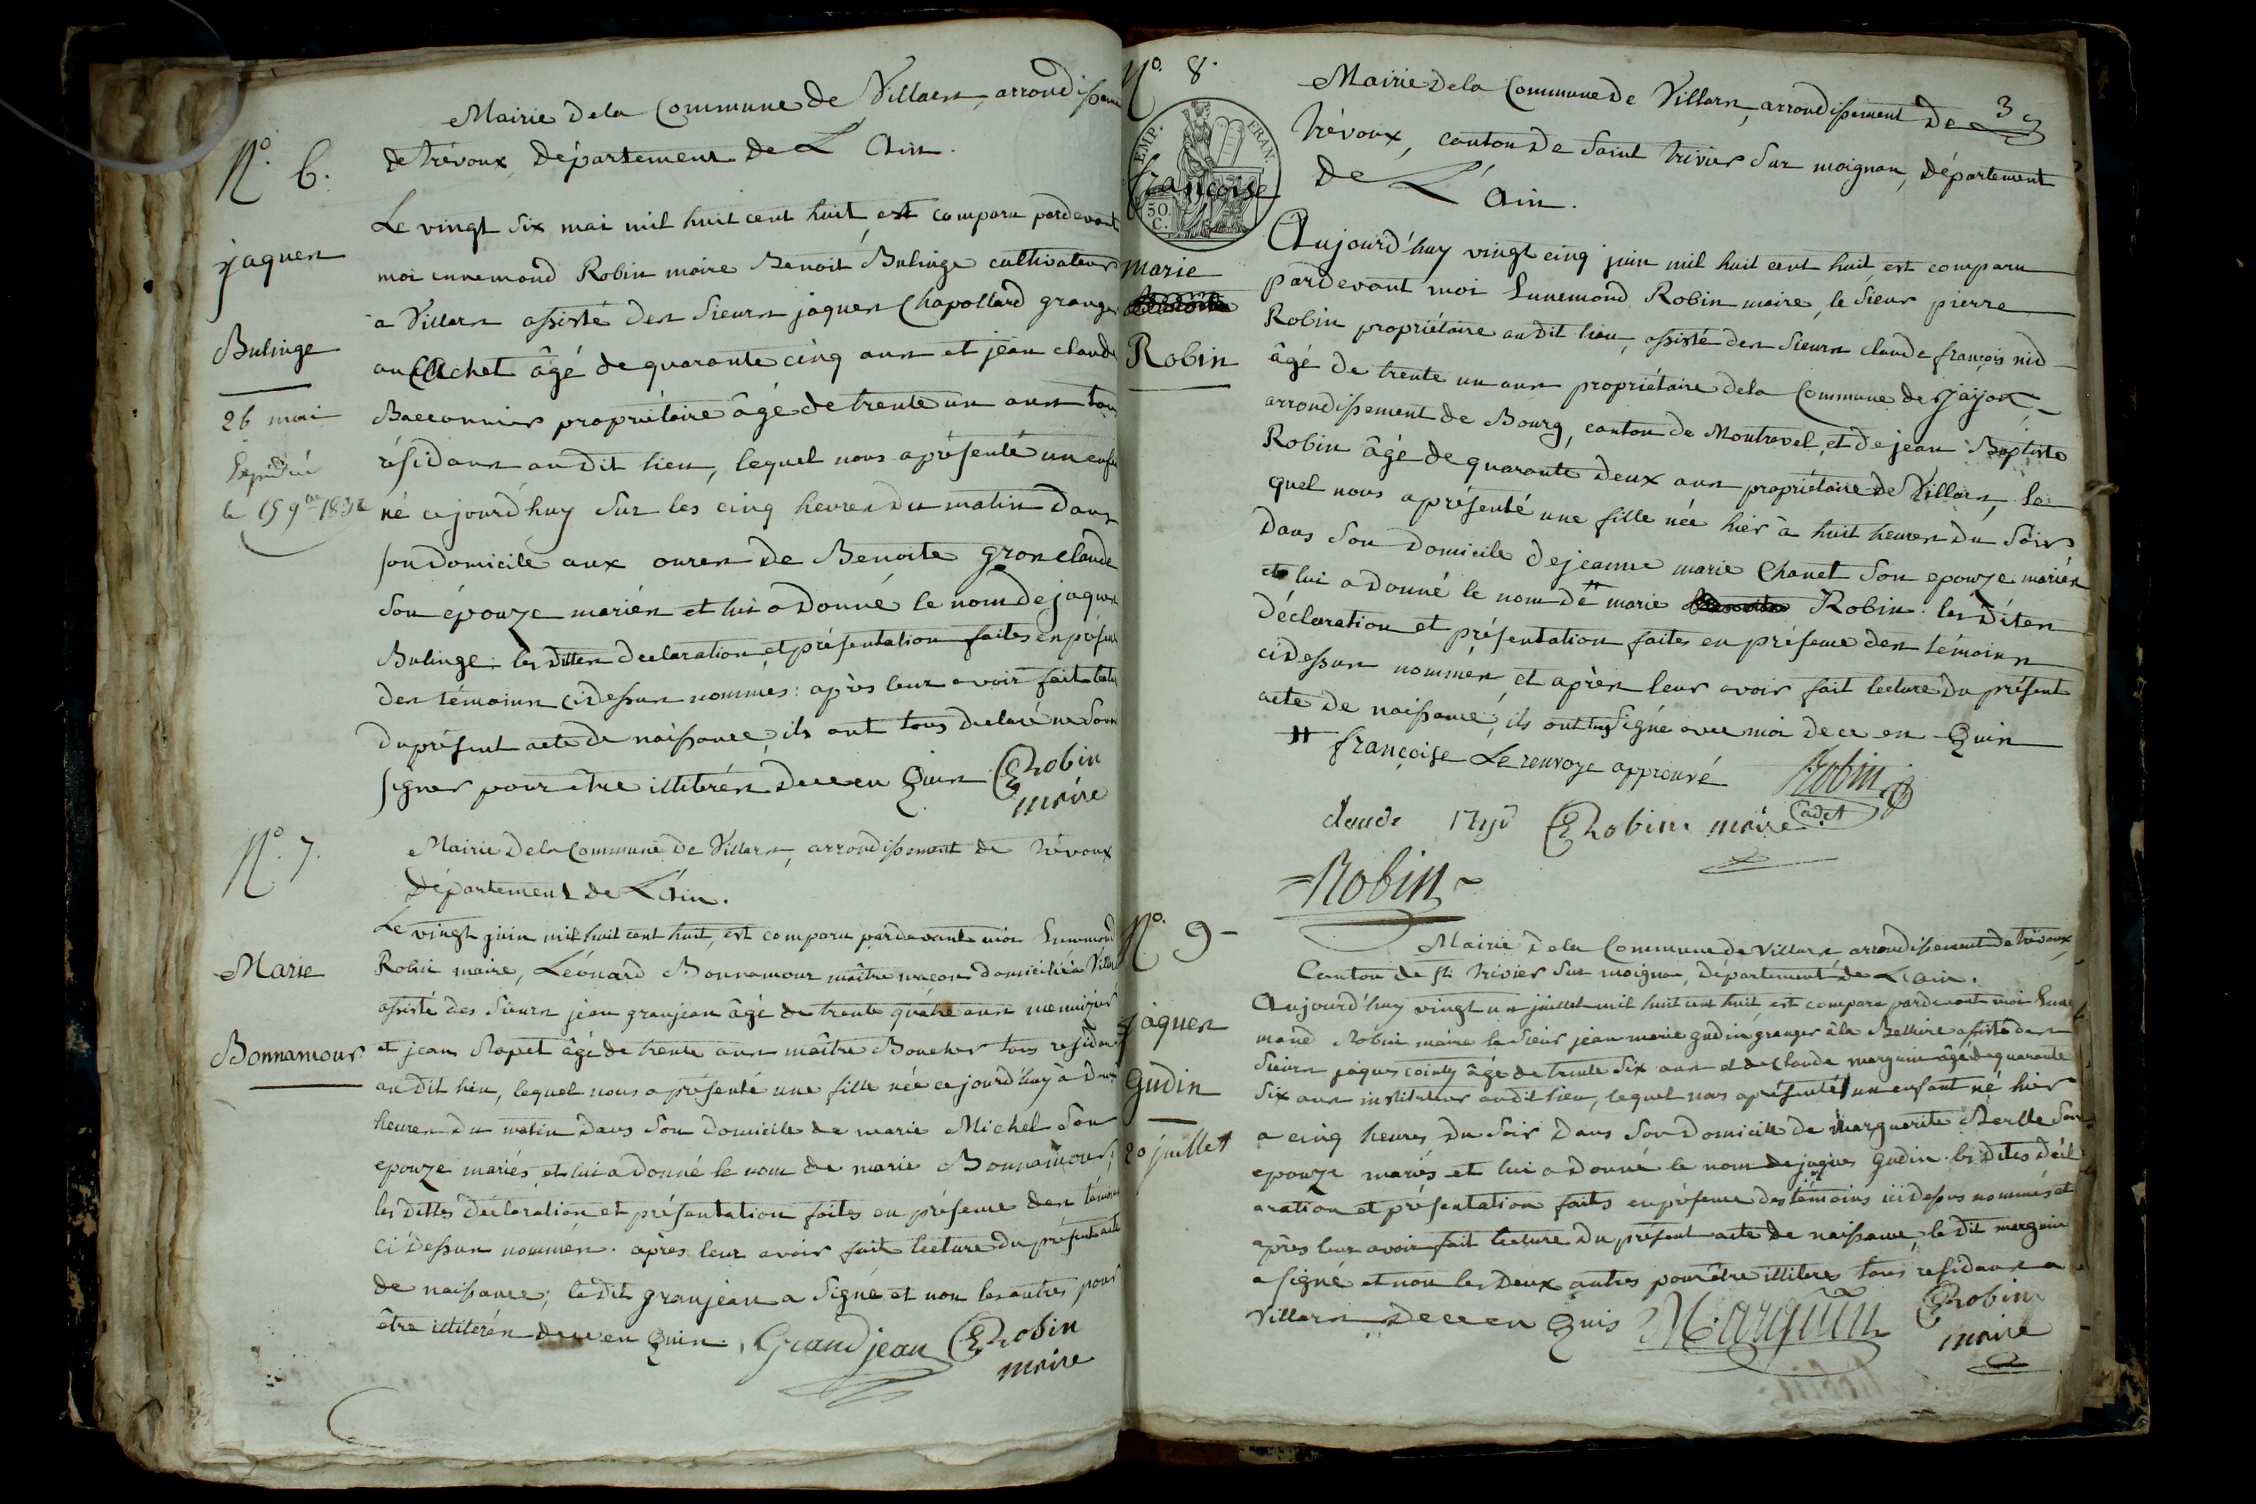 N.° 6.
jaques
Bulinge
26 mai
Expédié
le 15 9.bre 183
Mairie dela Commune de Villars, arrondissem
de trévoux, Département de L'Ain.
Le vingt six mai mil huit cent huit, est comparu pardevant
moi ennemond Robin maire Benoit Bulinge cultivateur
a Villars assisté des Sieurs jaques Chapollard granger
au Cachet âgé de quarante cinq ans et jean claude
Bacconnier propriétaire âgé de trente un ans tous
résidans audit lieu, lequel nous a présenté un enfan
né cejourd'huy sur les cinq heures du matin dans
son domicile aux oures de Benoite gros claude
son épouze mariés et lui a donné le nom de jaques
Bulinge. les dittes declaration et présentation faites en présen
des témoins cidessus nommés: après leur avoir fait lectu
du présent acte de naissance, ils ont tous declaré ne savoir
signer pour être illiterés dece en quis ERobin
maire
N.° 7.
Marie
Bonnamour
Mairie dela Commune de Villars, arrondissement de trévoux
Département de L'Ain.
Le vingt juin mil huit cent huit, est comparu pardevant moi Ennemond
Robin maire, Léonard Bonnamour maître maçon domicilié à Villars
assisté des Sieurs jean granjean âgé de trente quatre ans menuisier
et jean Rapet âgé de trente ans maître Boucher tous residans
audit lieu, lequel nous a présenté une fille née cejourd'huy à deux
heures du matin dans son domicile de marie Michel son
epouze mariés, et lui a donné le nom de marie Bonnamour;
les dittes déclaration et présentation faites en présence des témoins
cidessus nommés. après leur avoir fait lecture du présent acte
de naissance; le dit granjean a signé et non les autres pour
être illiterés dece en quis. Grandjean ERobin
maire
N.° 8.
3
EMP. FRAN.
50. C.
françoise
marie
Robin
Mairie dela Commune de Villars, arrondissement de
trévoux, canton de Saint trivier sur moignan, département
de L'Ain.
Aujourd'huy vingt cinq juin mil huit cent huit, est comparu
pardevant moi Ennemond Robin maire, le Sieur pierre
Robin propriétaire audit lieu, assisté des Sieurs claude françois nid
âgé de trente un ans propriétaire dela Commune de jayat,
arrondissement de Bourg, canton de Montrevel, et de jean Baptiste
Robin âgé de quarante deux ans propriétaire de Villars, le
quel nous a présenté une fille née hier à huit heures du soir
dans son domicile de jeanne marie Chanet son epouze mariés
et lui a donné le nom de # marie Robin. les dites
déclaration et présentation faites en présence des témoins
cidessus nommés et après leur avoir fait lecture du présent
acte de naissance, ils ont tous signé avec moi dece en quis
# françoise Le renvoye approuvé Robin
Cadet
claude nid ERobin maire
Robin
N.° 9
jaques
Gudin
20 juillet
Mairie dela Commune de Villars arrondissement de trévoux,
Canton de St. trivier sur moignan, département de L'ain.
Aujourd'huy vingt un juillet mil huit cent huit, est comparu pardevant moi Enne
mond Robin maire le Sieur jean marie gudin granger à la assisté des
Sieurs jaques cointy âgé de trente six ans et de Claude marguin âgé de quarante
six ans instituteur audit lieu, lequel nous a présenté un enfant né hier
a cinq heures du soir dans son domicile de marguerite son
epouze mariés et lui a donné le nom de jaques gudin. les dites décl
aration et présentation faites en présence des témoins ci dessus nommés et
après leur avoir fait lecture du présent acte de naissance, le dit marguin
a signé et non les deux autres pour être illiteres tous residans a
Villars dece en quis Marguin ERobin
maire